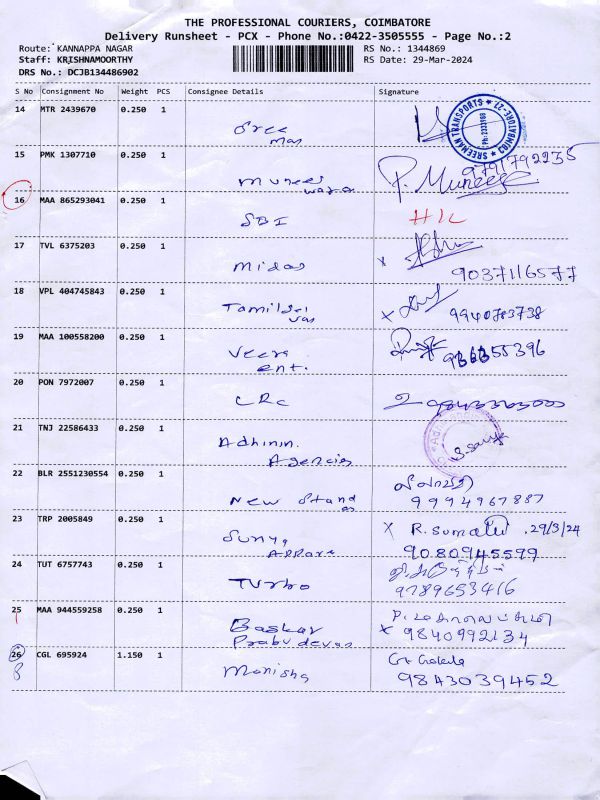 THE PROFESSIONAL COURIERS, COIMBATORE
Delivery Runsheet - PCX - Phone No.:0422-3505555 - Page No.:2
Route: KANNAPPA NAGAR
RS No.: 1344869
Staff: KRISHNAMOORTHY
RS Date: 29-Mar-2024
DRS No.: DCJB134486902
S No Consignment No Weight PCS Consignee Details Signature
14 MTR 2439670 0.250 1
Sree
mas
SREEMAN TRANSPORTS
COIMBATORE-27
15 PMK 1307710 0.250 1
9791792255
Munees
waran
P. Muneesh
16 MAA 865293041 0.250 1
SBI
17 TVL 6375203 0.250 1
Midas
x
9037116577
18 VPL 404745843 0.250 1
Tamilsel
van
x 9940783738
19 MAA 100558200 0.250 1
Veera
ent.
20 PON 7972007 0.250 1
CRC
21 TNJ 22586433 0.250 1
Adhinin
Agencies
22 BLR 2551230554 0.250 1
New Stand
as
9994967887
23 TRP 2005849 0.250 1
Suny,
Appara
x R. Sumathi .29/3/24
9080945599
24 TUT 6757743 0.250 1
Turbo
9789653416
25 MAA 944559258 0.250 1
Baskar
Prabu devan
x 9840992134
26 CGL 695924 1.150 1
Monisha
G Gokila
9843039452
8